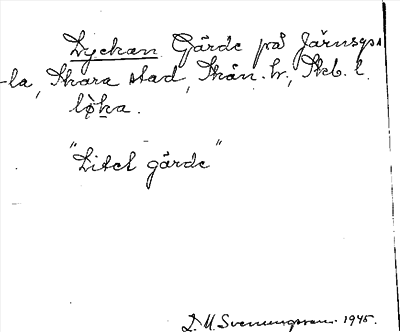 Lyckan Gärde på Järnsgs
-la, Skara stad, Skån. hr, Skb. l.
lø̀ka.
"Litet gärde"
D. U. Svenungsson. 1945.